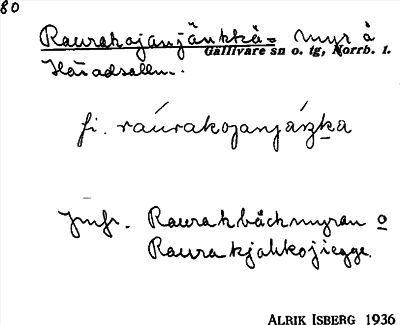 80
Raurakojanjänkkä = myr å
Gällivare sn o. tg, Norrb. l.
fi. raúrakojanjáŋka
Jmfr. Raurakbäckmyran o
Raurakjohkojiegge.
ALRIK ISBERG 1936